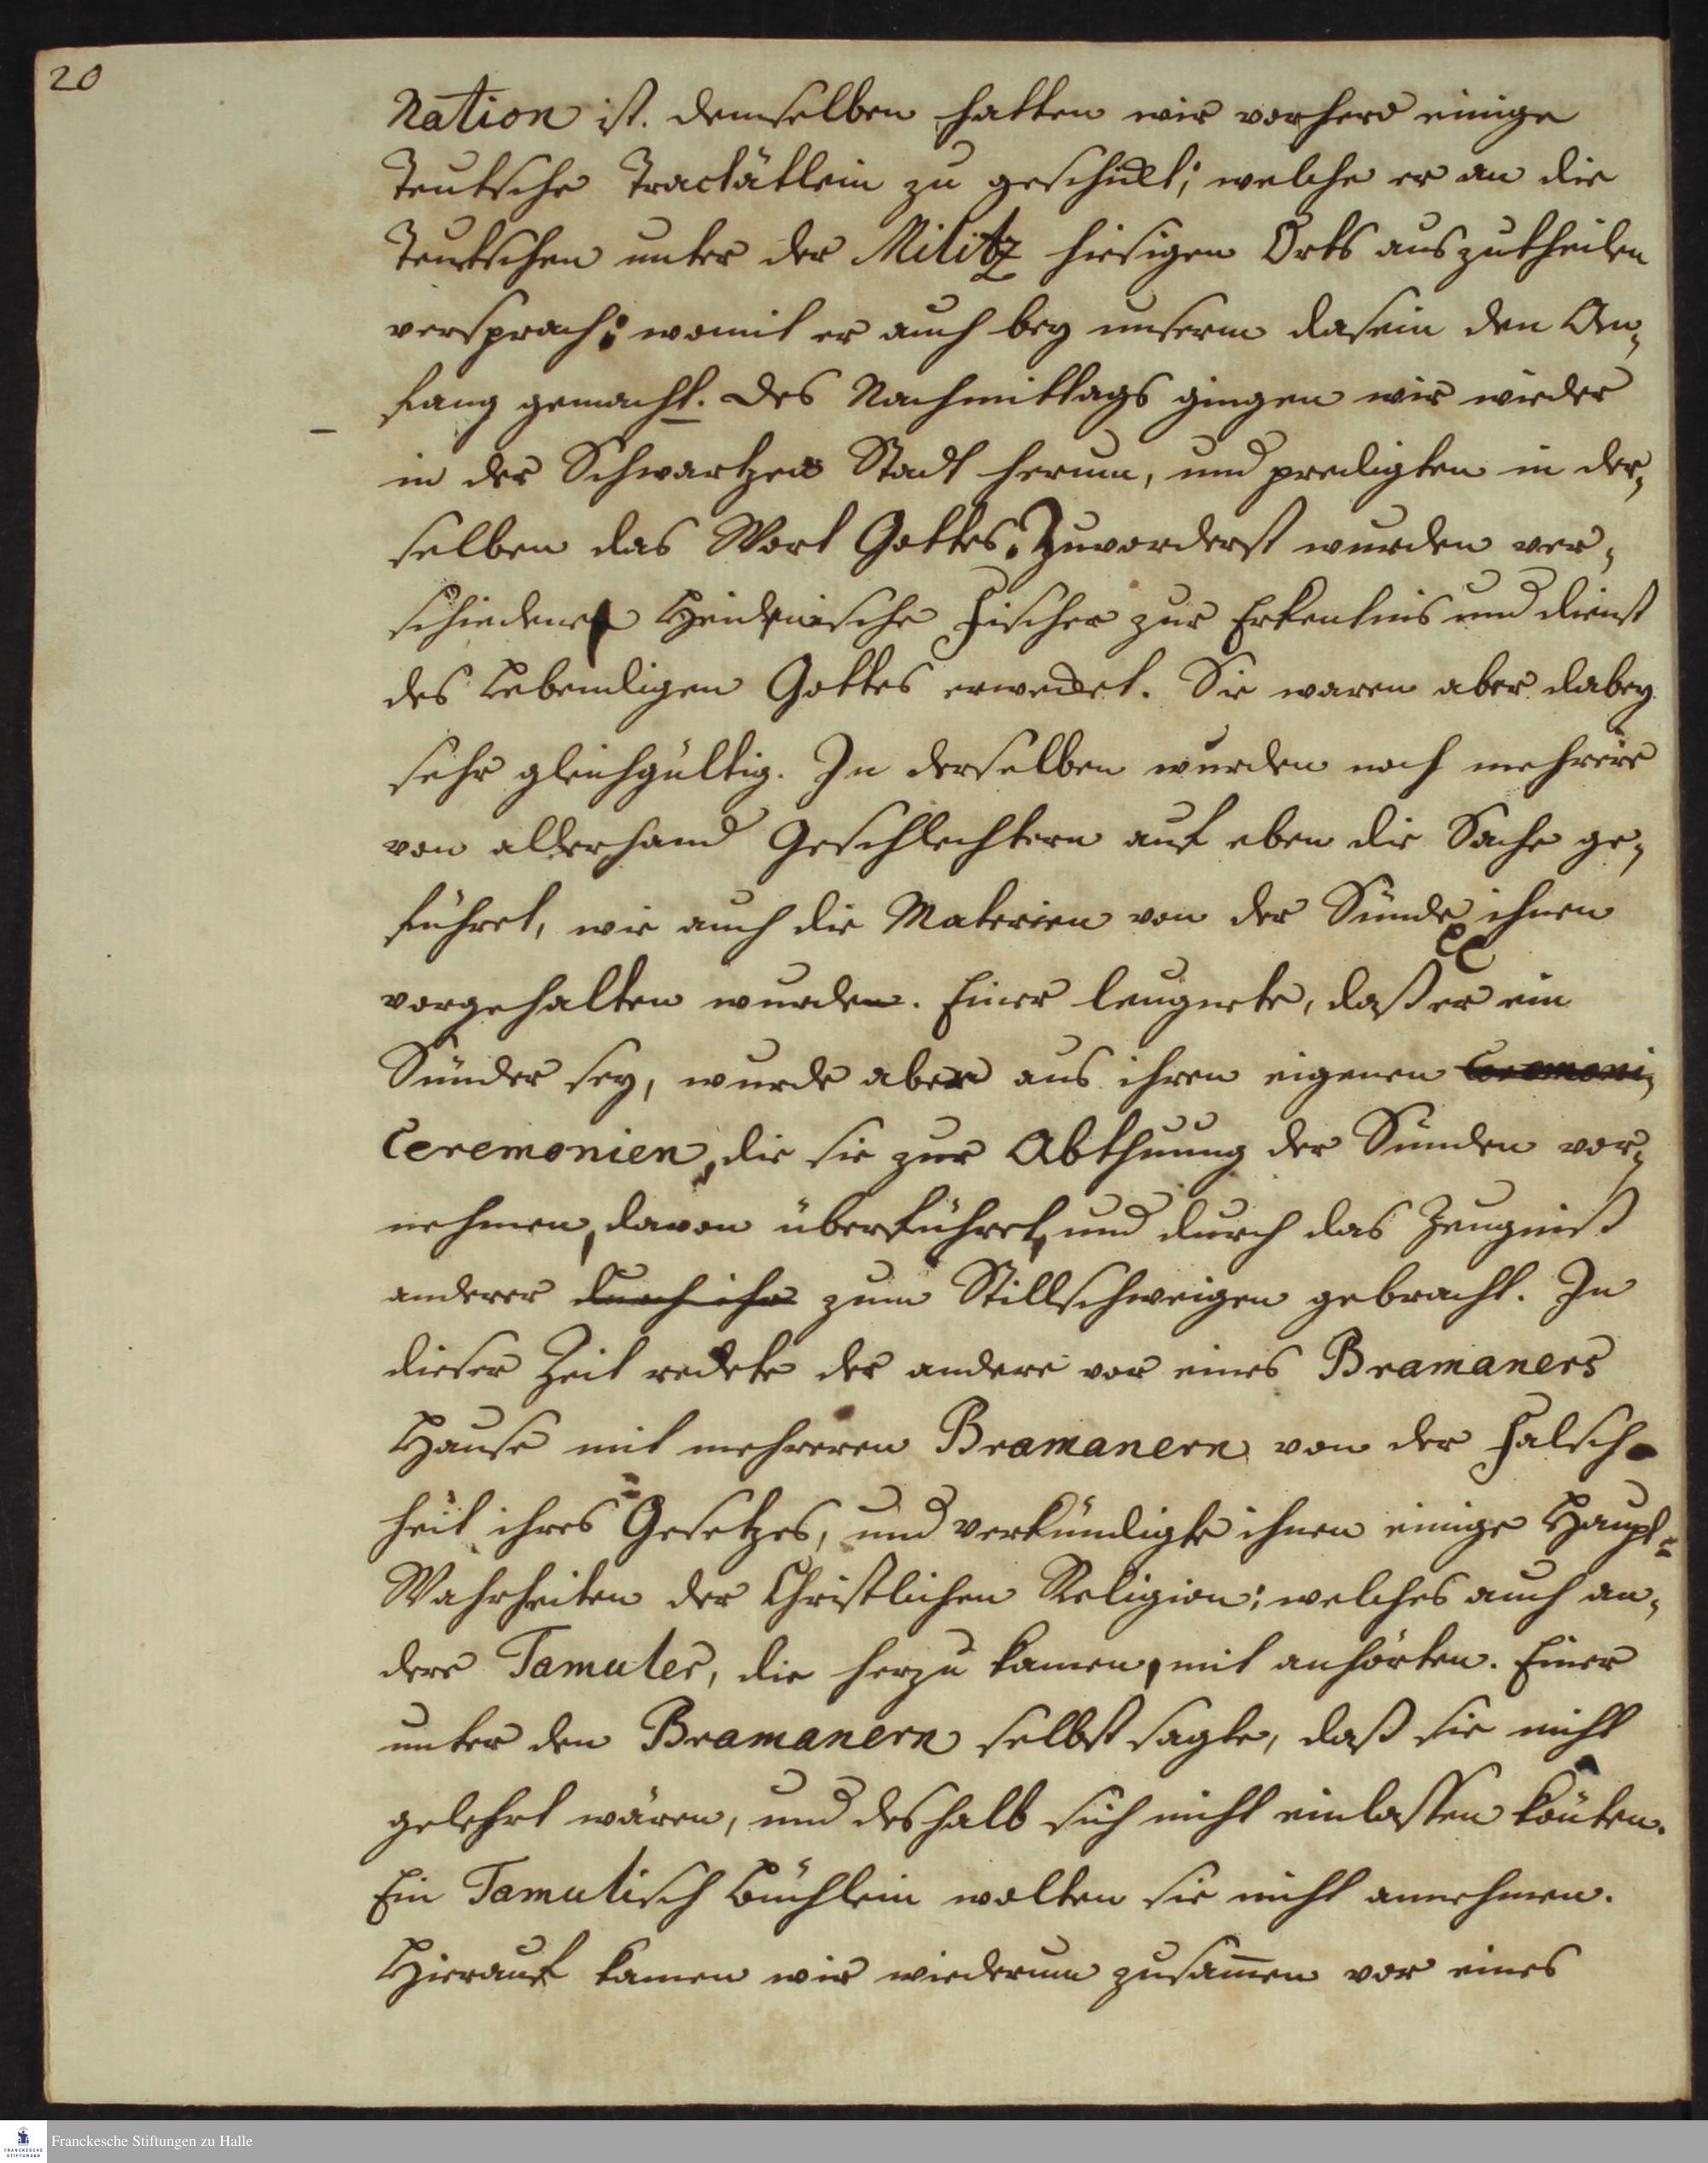 20
Nation ist. demselben hatten wir vorhero einige
Teutsche Tractätlein zu geschickt; welche er an die
Teutschen unter der Militz hiesigen Orts auszutheilen
versprach; womit er auch bey unserm dasein den An-
fang gemacht. Des Nachmittags gingen wir wieder
in der Schwartzen Stadt herum, und predigten in der-
selben das Wort Gottes. Zuvorderst wurden ver-
schiedene Heidnische Fischer zur Erkentnis und dienst
des Lebendigen Gottes erwecket. Sie waren aber dabey
sehr gleichgültig. In derselben wurden noch mehrere
von allerhand Geschlechtern auf eben die Sache ge-
führet, wie auch die Materien von der Sünde ihnen
vorgehalten wurden. Einer leugnete, daß er ein
Sünder sey, wurde aber aus ihren eigenen Ceremoni-
Ceremonien, die sie zur Abthuung der Sünden vor-
nehmen, davon überführet, und durch das Zeugniß
anderer durch ihr zum Stillschweigen gebracht. In
dieser Zeit redete der andere vor eines Bramaners
Hause mit mehreren Bramanern von der Falsch-
heit ihres Gesetzes, und verkündigte ihnen einige Haupt-
Wahrheiten der Christlichen Religion; welches auch an-
dere Tamuler, die herzu kamen, mit anhörten. Einer
unter den Bramanern selbst sagte, daß sie nicht
gelehrt wären, und deshalb sich nicht einlassen köñten.
Ein Tamulisch Büchlein wolten sie nicht annehmen.
Hierauf kamen wir wiederum zusam̄en vor eines
Franckesche Stiftungen zu Halle